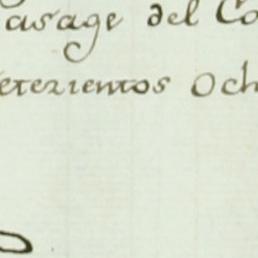 asage del Co
etezientos Och